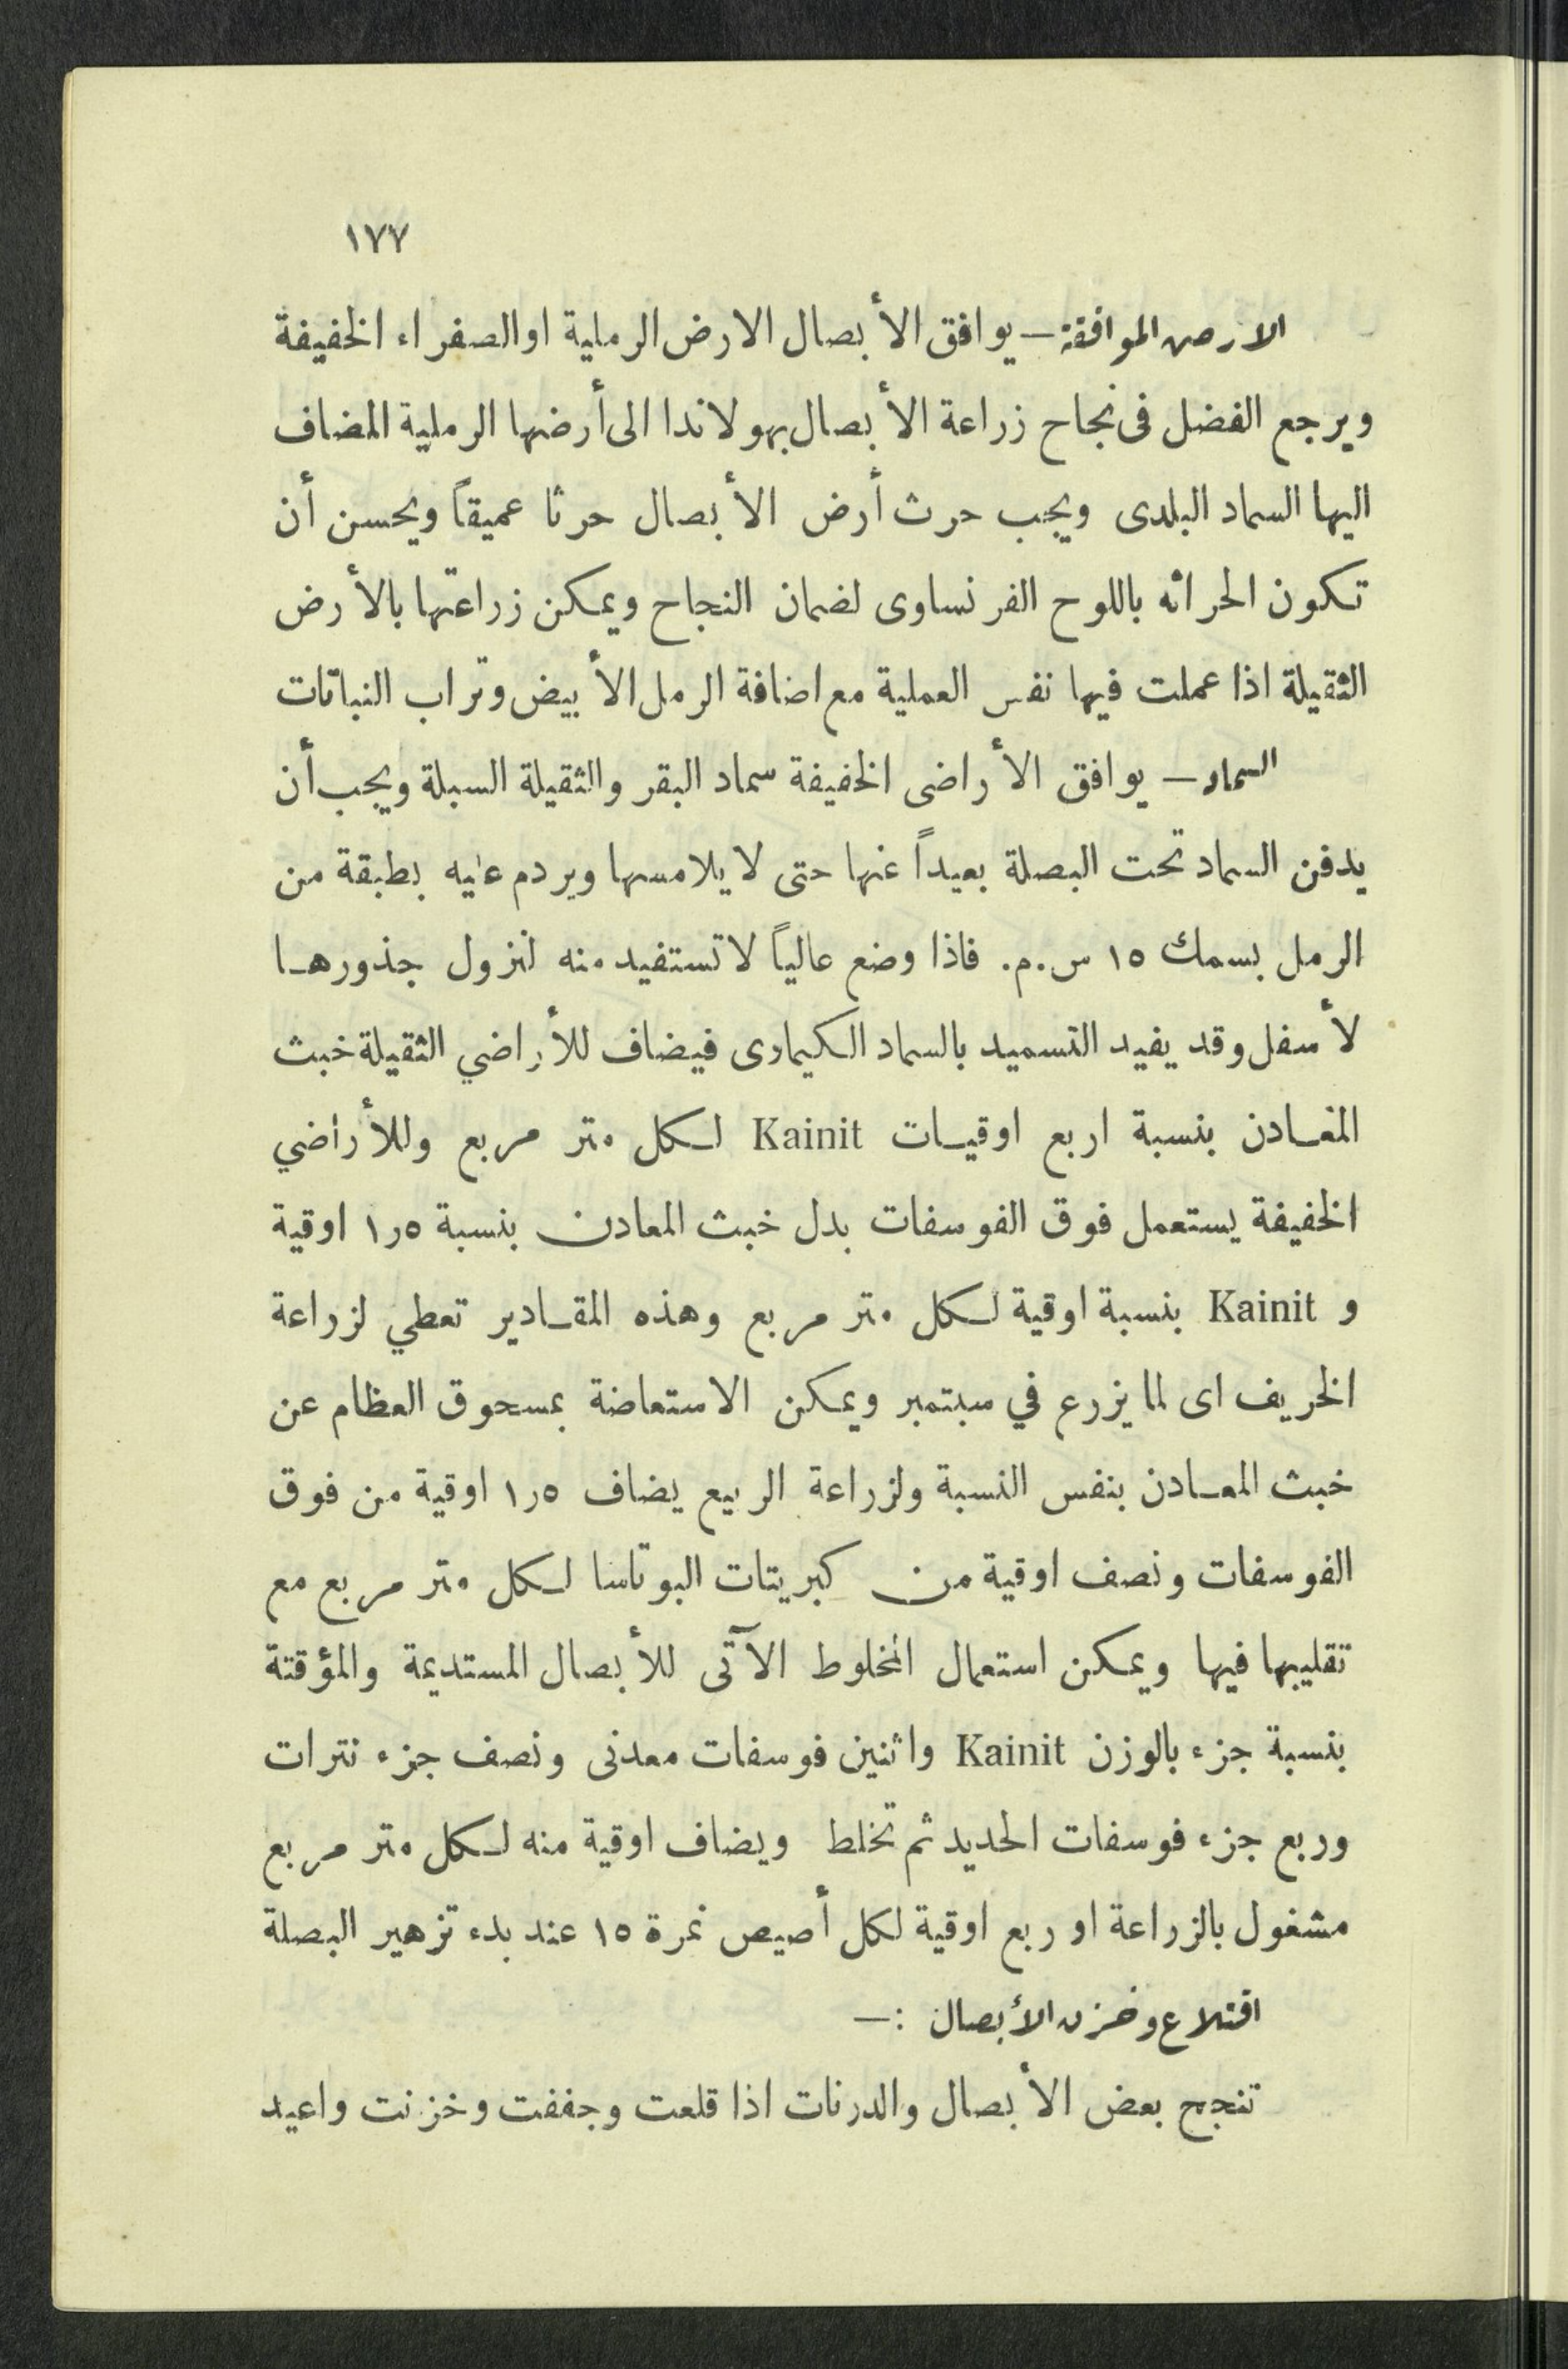 ١٧٧
الارض الموافقة — يوافق الأبصال الارض الرملية او الصفراء الخفيفة
ويرجع الفضل فى نجاح زراعة الأبصال بهولاندا الى أرضها الرملية المضاف
اليها السماد البلدى ويجب حرث أرض الأبصال حرثا عميقاً ويحسن أن
تكون الحراثه باللوح الفرنساوى لضمان النجاح ويمكن زراعتها بالأرض
الثقيلة اذا عملت فيها نفس العملية مع اضافة الرمل الأبيض وتراب النباتات
السماد — يوافق الأراضى الخفيفة سماد البقر والثقيلة السبلة ويجب أن
يدفن السماد تحت البصلة بعيداً عنها حتى لا يلامسها ويردم عليه بطبقة من
الرمل بسمك ١٥ س.م. فاذا وضع عالياً لا تستفيد منه لنزول جذورها
لأسفل وقد يفيد التسميد بالسماد الكيماوى فيضاف للأراضي الثقيلة خبث
المعادن بنسبة اربع اوقيات Kainit لكل متر مربع وللأراضي
الخفيفة يستعمل فوق الفوسفات بدل خبث المعادن بنسبة ١٫٥ اوقية
و Kainit بنسبة اوقية لكل متر مربع وهذه المقادير تعطي لزراعة
الخريف اى لما يزرع في سبتمبر ويمكن الاستعاضة بمسحوق العظام عن
خبث المعادن بنفس النسبة ولزراعة الربيع يضاف ١٫٥ اوقية من فوق
الفوسفات ونصف اوقية من كبريتات البوتاسا لكل متر مربع مع
تقليبها فيها ويمكن استعمال المخلوط الآتى للأبصال المستديمة والمؤقتة
بنسبة جزء بالوزن Kainit واثنين فوسفات معدنى ونصف جزء نترات
وربع جزء فوسفات الحديد ثم تخلط ويضاف اوقية منه لكل متر مربع
مشغول بالزراعة او ربع اوقية لكل أصيص نمرة ١٥ عند بدء تزهير البصلة
اقتلاع وخزن الأبصال :—
تنجح بعض الأبصال والدرنات اذا قلعت وجففت وخزنت واعيد